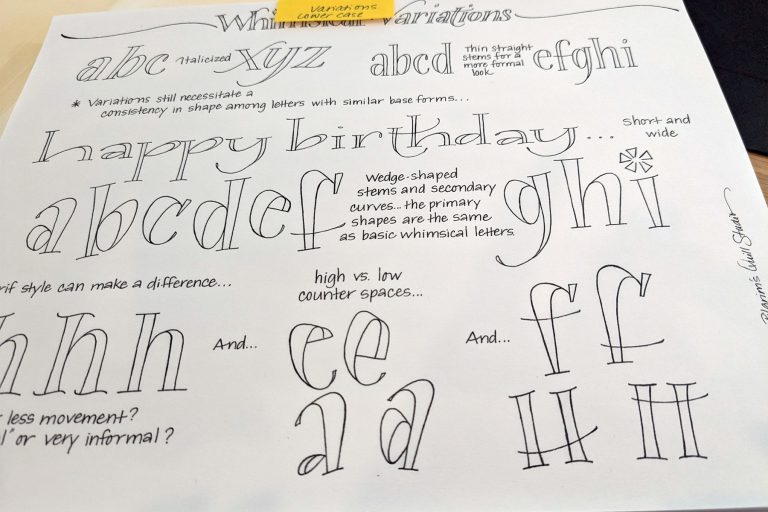 Variations
Lower case
Whimsical Variations
abc Italicized xyz abcd Thin straight stems for a more formal look efghi
* Variations still necessitate a
consistency in shape among letters with similar base forms...
happy birthday... short and wide
abcdef Wedge-shaped stems and secondary curves... the primary shapes are the same as basic whimsical letters. ghi
rif style can make a difference...
high vs. low
counter spaces...
h h h And... e e And... f f
less movement?
l" or very informal?
a a H H
Pilgrim's Quill Studio